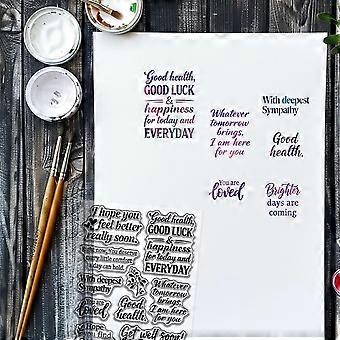 Good health,
GOOD LUCK
&
happiness
for today and
EVERYDAY
Whatever
tomorrow
brings,
I am here
for you
With deepest
Sympathy
Good
health.
You are
loved
Brighter
days are
coming
I hope you
feel better
really soon.
now, You deserve
every little comfort
day can hold.
With deepest
Sympathy
You are
loved
Good
health.
I hope
you find
Good health,
GOOD LUCK
&
happiness
for today and
EVERYDAY
Whatever
tomorrow
brings,
I am here
for you
Get well soon!